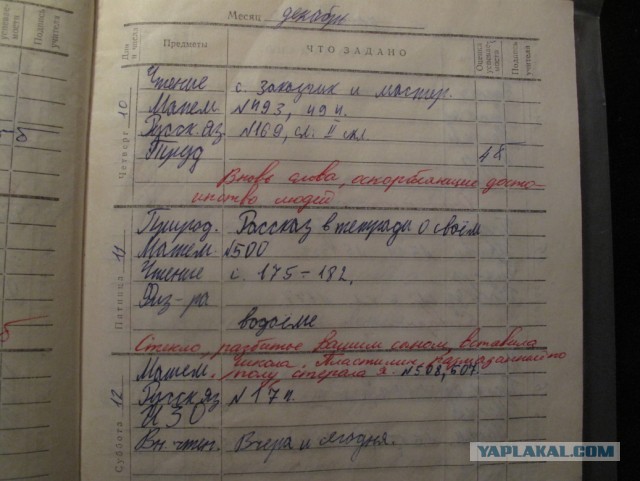 Месяц декабрь
успеваемости
Подпись учителя
Дни и числа
Предметы
ЧТО ЗАДАНО
Оценка успеваемости
Подпись учителя
Четверг 10
Чтение с. заказчик и мастер.
Матем №493, 49 п.
Русск. яз. №169, сл. II скл.
Труд
Вновь слова, оскорбляющие досто-
инство людей
Пятница 11
Природ. Рассказ в тетради о своём
Матем. №500
Чтение с. 175-182.
Физ-ра
водоеме
Стекло, разбитое Вашим сыном, вставила
школа. Пластилин, размазанный по
полу стерала я.
Суббота 12
Матем. №508, 507.
Русск яз №17 п.
ИЗО
Вн. чтен. Вчера и сегодня.
YAPLAKAL.COM